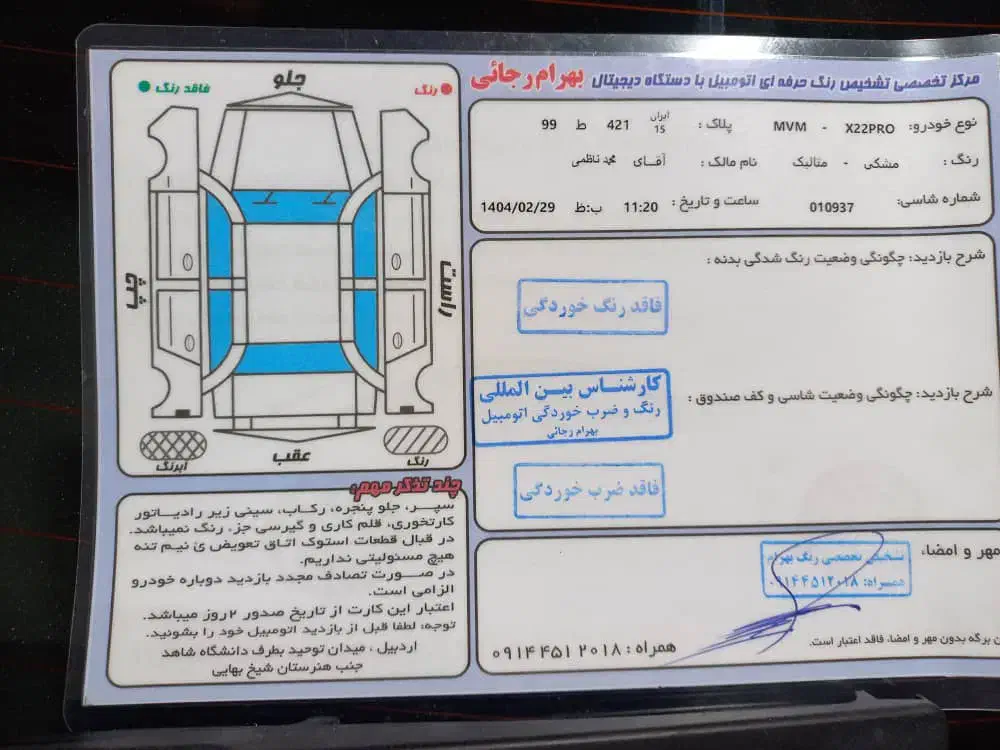 مرکز تخصصی تشخیص رنگ حرفه ای اتومبیل با دستگاه دیجیتال بهرام رجائی
نوع خودرو: X22PRO - MVM پلاک: ایران 15 421 ط 99
رنگ: مشکی - متالیک نام مالک: آقای محمد ناظمی
شماره شاسی: 010937 ساعت و تاریخ: 11:20 ب:ظ 1404/02/29
شرح بازدید: چگونگی وضعیت رنگ شدگی بدنه :
فاقد رنگ خوردگی
شرح بازدید: چگونگی وضعیت شاسی و کف صندوق :
کارشناس بین المللی
رنگ و ضرب خوردگی اتومبیل
بهرام رجائی
فاقد ضرب خوردگی
مهر و امضاء
تشخیص تخصصی رنگ بهرام
همراه: ۰۹۱۴۴۵۱۲۰۱۸
برگه بدون مهر و امضا، فاقد اعتبار است.
همراه : ۰۹۱۴۴۵۱۲۰۱۸
رنگ
جلو
فاقد رنگ
راست
چپ
رنگ
عقب
ابرنگ
چند تذکر مهم:
سپر، جلو پنجره، رکاب، سینی زیر رادیاتور
کارتخوری، قلم کاری و گیرسی جزء رنگ نمیباشد.
در قبال قطعات استوک اتاق تعویض ئ نیم تنه
هیچ مسئولیتی نداریم.
در صورت تصادف مجدد بازدید دوباره خودرو
الزامی است.
اعتبار این کارت از تاریخ صدور ۲ روز میباشد.
توجه: لطفا قبل از بازدید اتومبیل خود را بشوئید.
اردبیل ، میدان توحید بطرف دانشگاه شاهد
جنب هنرستان شیخ بهایی